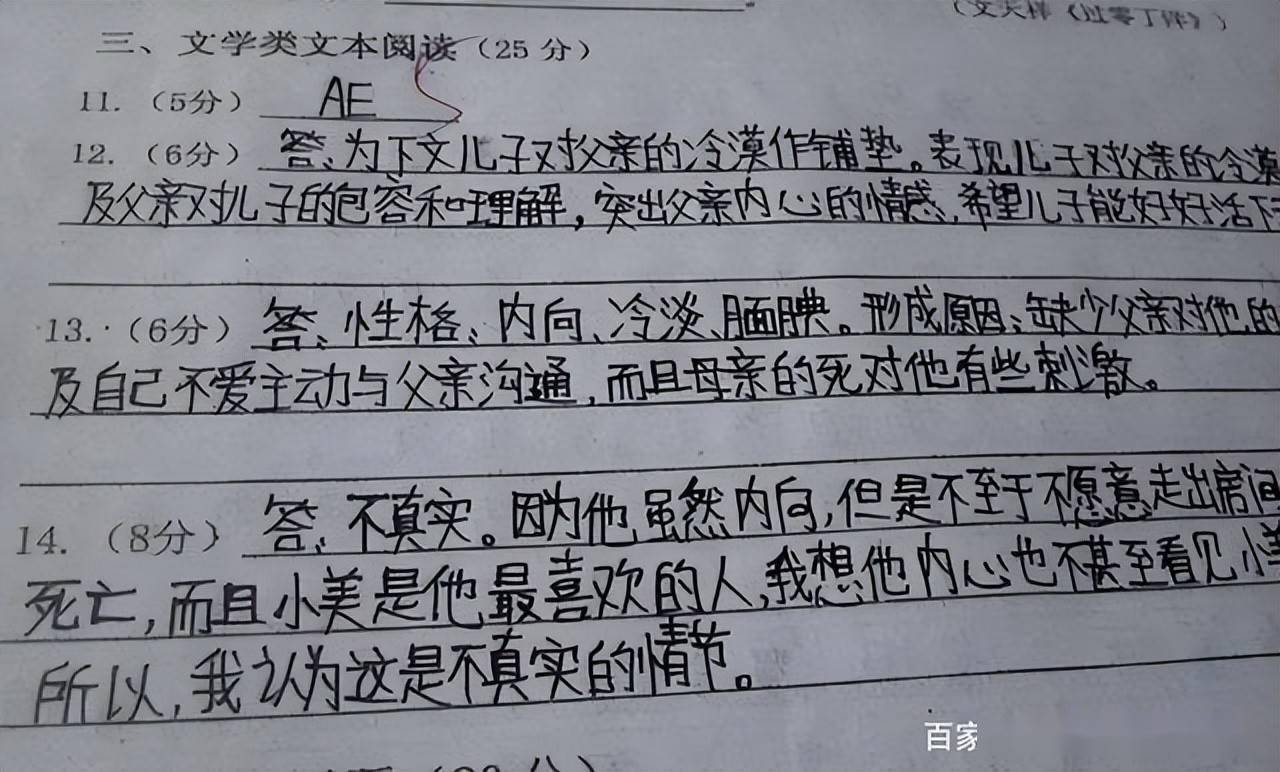 (文天祥《过零丁洋》)
三、文学类文本阅读(25 分)
11. (5分) AE
12. (6分) 答、为下文儿子对父亲的冷漠作铺垫。表现儿子对父亲的冷漠
及父亲对儿子的包容和理解，突出父亲内心的情感，希望儿子能好好活下
13. (6分) 答、性格、内向、冷淡、腼腆。形成原因：缺少父亲对他的
及自己不爱主动与父亲沟通，而且母亲的死对他有些刺激。
14. (8分) 答、不真实。因为他虽然内向，但是不至于不愿意走出房间
死亡，而且小美是他最喜欢的人，我想他内心也不甚至看见小美
所以，我认为这是不真实的情节。
百家